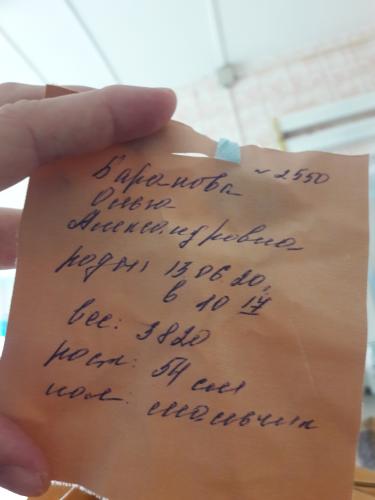 ~ 2550
Баранова
Ольга
Александровна
роды: 13 06 20,
в 10 17
вес: 3820
рост: 54 см
пол: мальчик